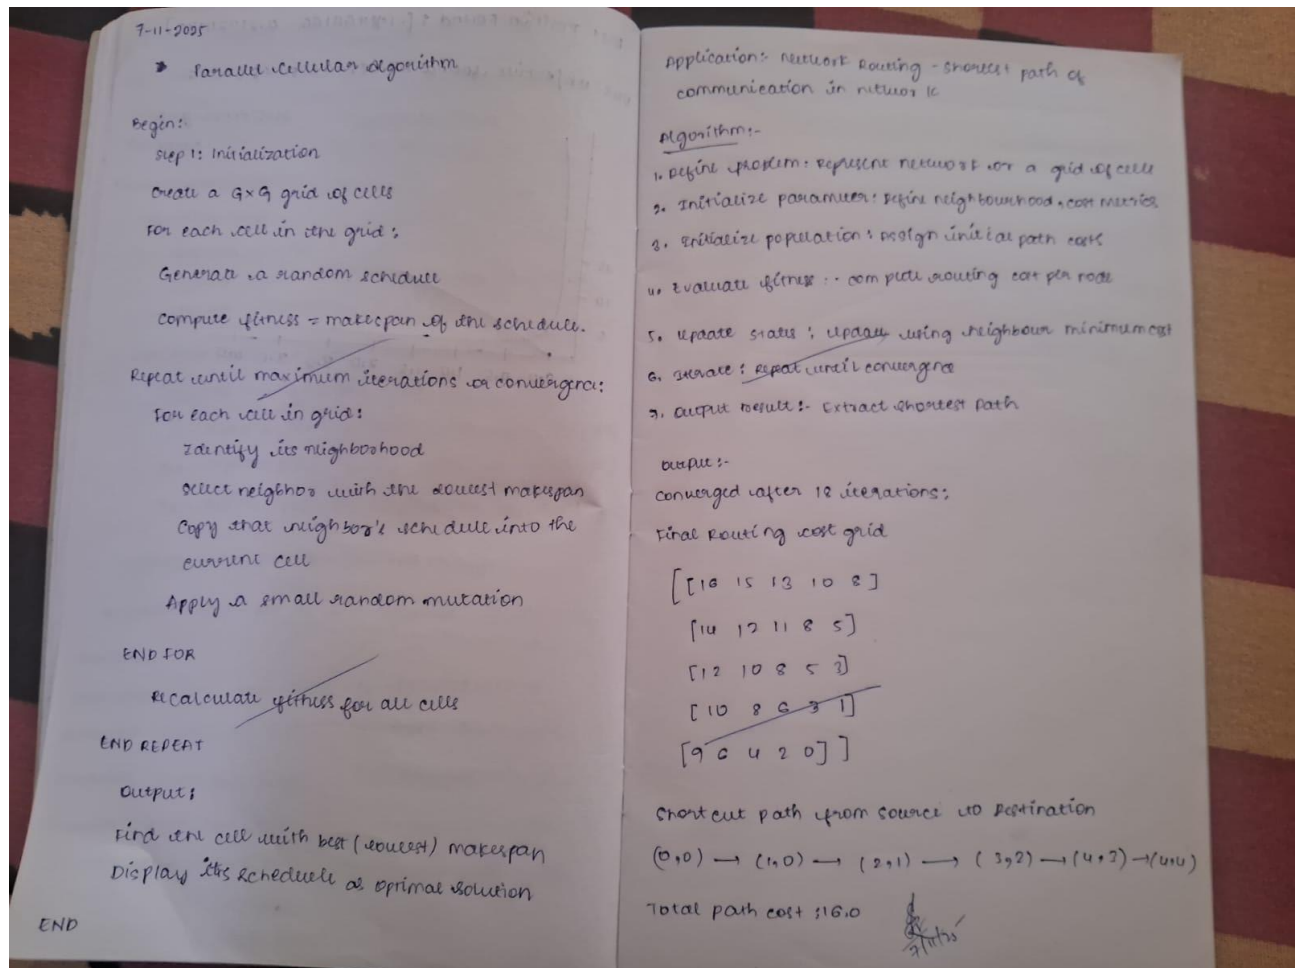 7-11-2025
Parallel Cellular Algorithm
Begin:
Step 1: Initialization
Create a G×G grid of cells
For each cell in the grid:
Generate a random schedule
Compute fitness = makespan of the schedule.
Repeat until maximum iterations or convergence:
For each cell in grid:
Identify its neighborhood
Select neighbor with the lowest makespan
Copy that neighbor's schedule into the
current cell
Apply a small random mutation
END FOR
Recalculate fitness for all cells
END REPEAT
Output:
Find the cell with best (lowest) makespan
Display its schedule as optimal solution
END
Application:- Network Routing - Shortest path of
communication in network
Algorithm:-
1. Define problem: Represent network or a grid of cells
2. Initialize parameter: Define neighbourhood, cost metrics
3. Initialize population: Assign initial path costs
4. Evaluate fitness:- compute routing cost per node
5. Update states: update using neighbour minimum cost
6. Iterate: Repeat until convergence
7. Output result:- Extract shortest path
Output:-
Converged after 18 iterations:
Final Routing cost grid
[[16 15 13 10 8]
[14 12 11 8 5]
[12 10 8 5 3]
[10 8 6 3 1]
[9 6 4 2 0]]
Shortcut path from source to Destination
(0,0) → (1,0) → (2,1) → (3,2) → (4,3) → (4,4)
Total path cost: 16.0
7/11/25